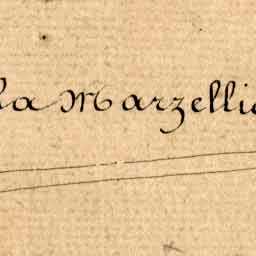 la Marzellie